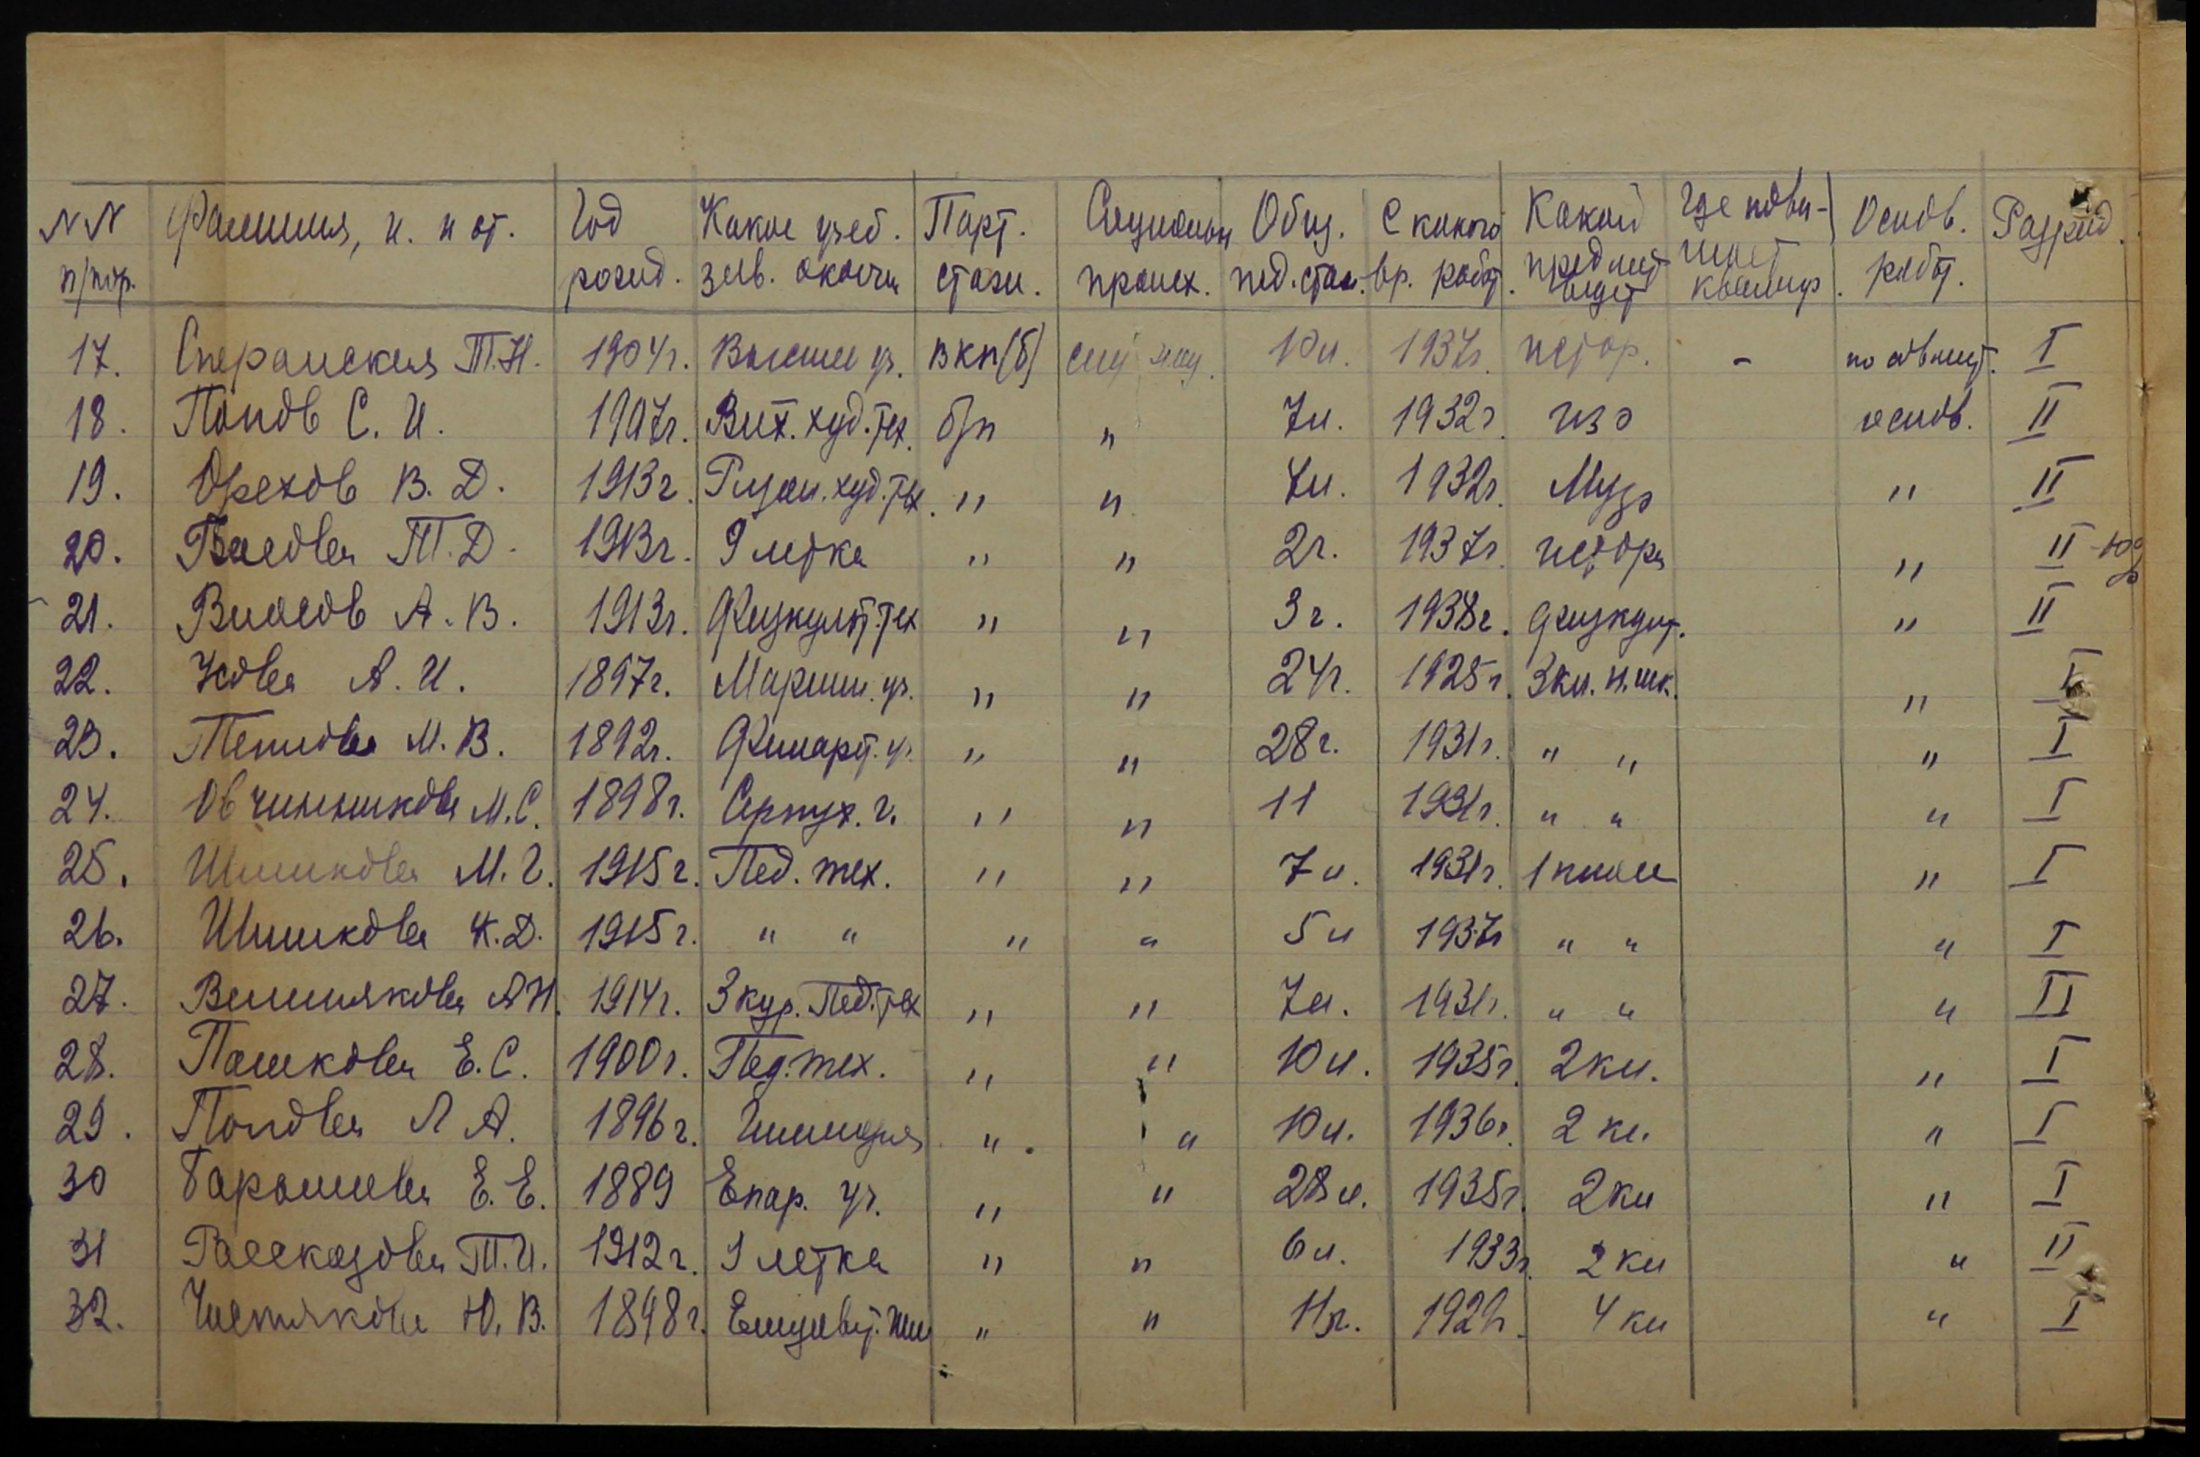 NN п/пор. Фамилия, и. и от. Год рожд. Какое учеб. зав. окончи Парт. стаж. Социальн происх. Общ. пед. стаж. С какого вр. работ. Какой предмет ведет Где повы-шает квалиф. Основ. работ. Разряд.
17. Сперанская Т.Н. 1904г. Высшее уч. ВКП(б) 10л. 1937г. истор. - по совмест. I
18. Попов С. И. 1907г. Вят. худ. тех. б/п " 7л. 1932г. изо основ. II
19. Орехов В. Д. 1913г. Рязан. худ. тех. " " 7л. 1932г. " II
20. Т. Д. 1913г. 9 летка " " 2г. 1937г. истори " II
21. Власов А. В. 1913г. Физкульт. тех " " 3г. 1938г. физкульт. " II
22. Усова А. И. 1897г. Мариин. уч. " " 24г. 1925г. 3кл. н. шк. " I
23. Теплова М. В. 1892г. уч. " " 28г. 1931г. " " " I
24. Овчинникова М.С. 1898г. Серпух. г. " " 11 1931г. " " " I
25. Шишкова М. Г. 1915г. Пед. тех. " " 7л. 1931г. 1 класс " I
26. Шишкова К. Д. 1915г. " " " " 5л 1937г " " " I
27. Вишнякова А Н. 1914г. 3 кур. Пед. тех " " 7л. 1931г. " " " II
28. Пашкова Е. С. 1900г. Пед. тех. " " 10л. 1935г. 2кл. " I
29. Попова Л А. 1896г. Гимназия " " 10л. 1936г. 2 кл. " I
30 Барышева Е. Е. 1889 Епар. уч. " " 28л. 1935г. 2кл " I
31 Рассказова Т. И. 1912г. 9 летка " " 6л. 1933г. 2 кл " II
32. Чистякова Ю. В. 1898г. Елизавет. " " 11л. 4 кл " I